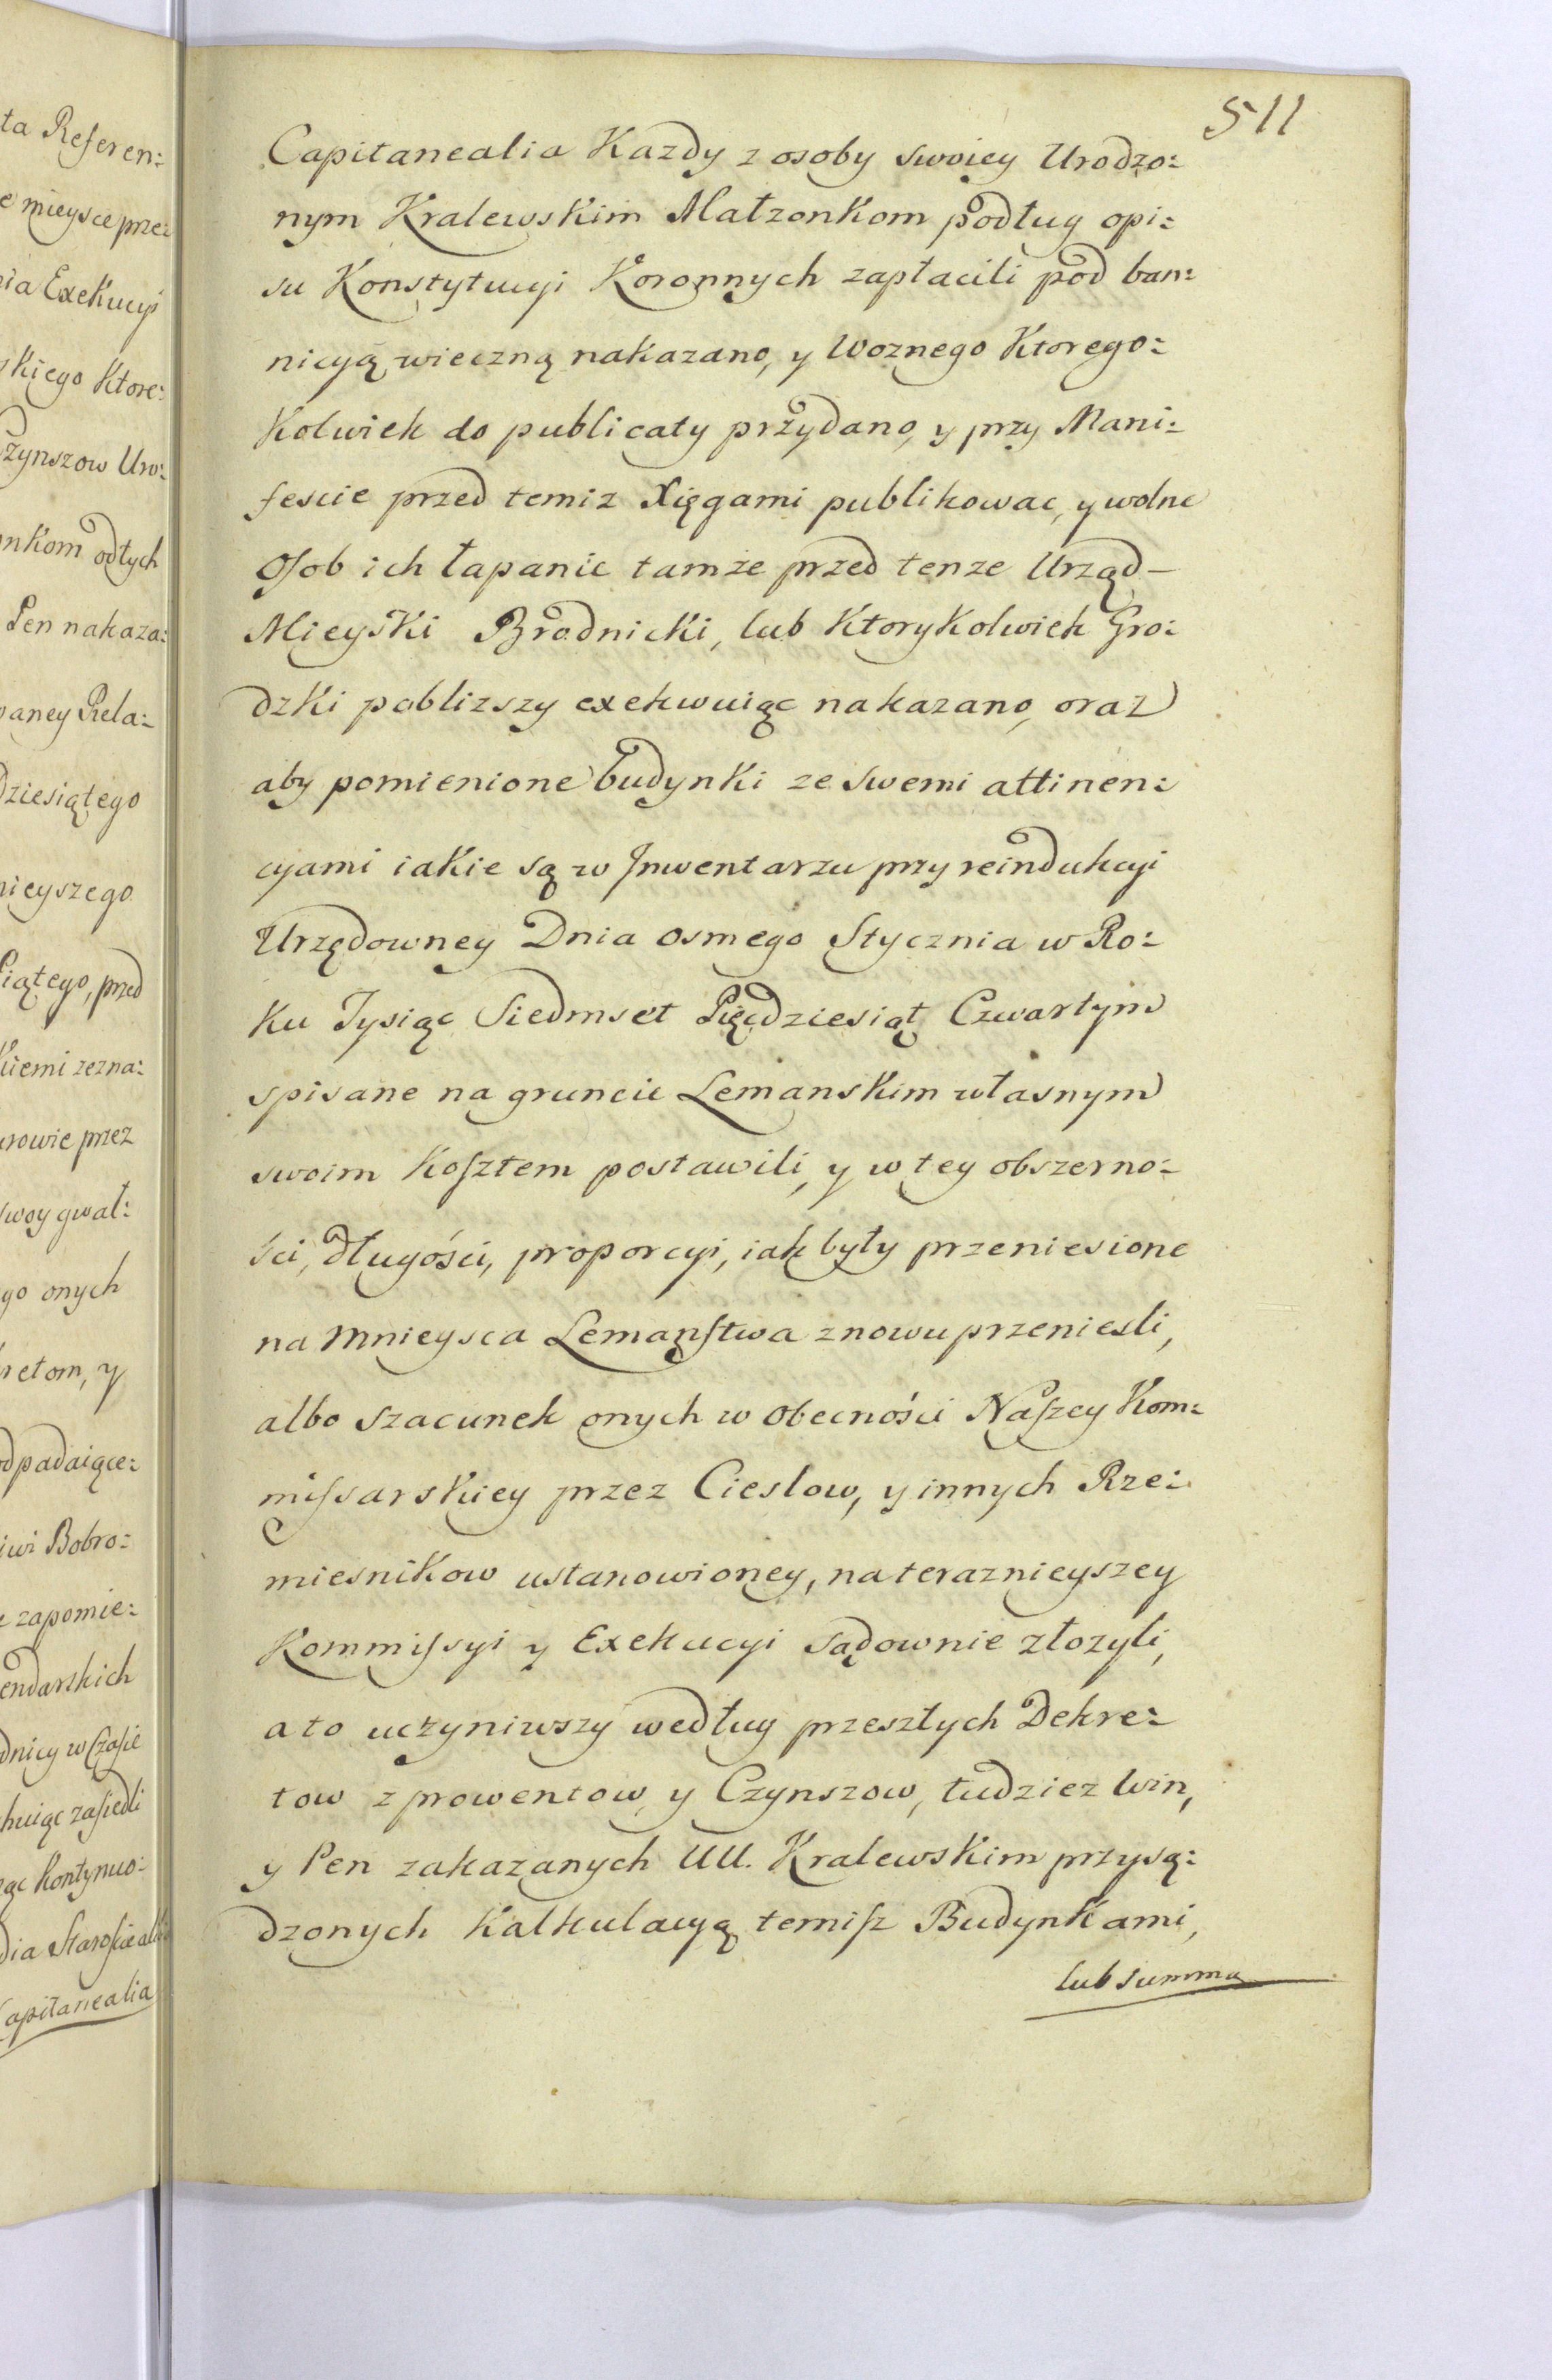 ta Referen:
e mieysce przez
nia Exekucyi
skiego Ktore:
Czynszow Uro:
onkom odtych
Pen nakaza:
paney Rela:
dziesiątego
nieyszego
Piątego, przed
kiemi zezna:
urowie przez
swoy gwał:
go onych
kretom, y
odpadaiące:
iwi Bobro:
e zapomie:
endarskich
dnicy w Czasie
huiąc zasiedli
ąc Kontynuo:
dia Staroście albo
Capitanealia
511
Capitanealia Kazdy z osoby swoiey Urodzo:
nym Kralewskim Małzonkom podług opi:
su Konstytucyi Koronnych zapłacili pod ban:
nicyą wieczną nakazano, y Woznego Ktorego:
Kolwiek do publicaty przydano, y przy Mani:
fescie przed temiz Xięgami publikowac, y wolne
Osob ich łapanie tamże przed tenze Urząd –
Mieyski Brodnicki, lub Ktorykolwiek Gro:
dzki poblizszy exekwuiąc nakazano, oraz
aby pomienione budynki ze swemi attinen:
cyami iakie są w Inwentarzu przy reindukcyi
Urzędowney Dnia osmego Stycznia w Ro:
ku Tysiąc Siedmset Pięcdziesiąt Czwartym
spisane na gruncie Lemanskim własnym
swoim Kosztem postawili, y w tey obszerno:
ści, długości, proporcyi, iak były przeniesione
na mnieysca Lemaństwa znowu przeniesli,
albo szacunek onych w obecności Naszey Kom:
missarskiey przez Cieslow, y innych Rze:
miesnikow ustanowioney, na teraznieyszey
Kommissyi y Exekucyi sądownie złozyli,
a to uczyniwszy według przeszłych Dekre:
tow z prowentow, y Czynszow, tudziez Win,
y Pen zakazanych UU. Kralewskim przysą:
dzonych Kalkulacyą temisz Budynkami,
lub summa